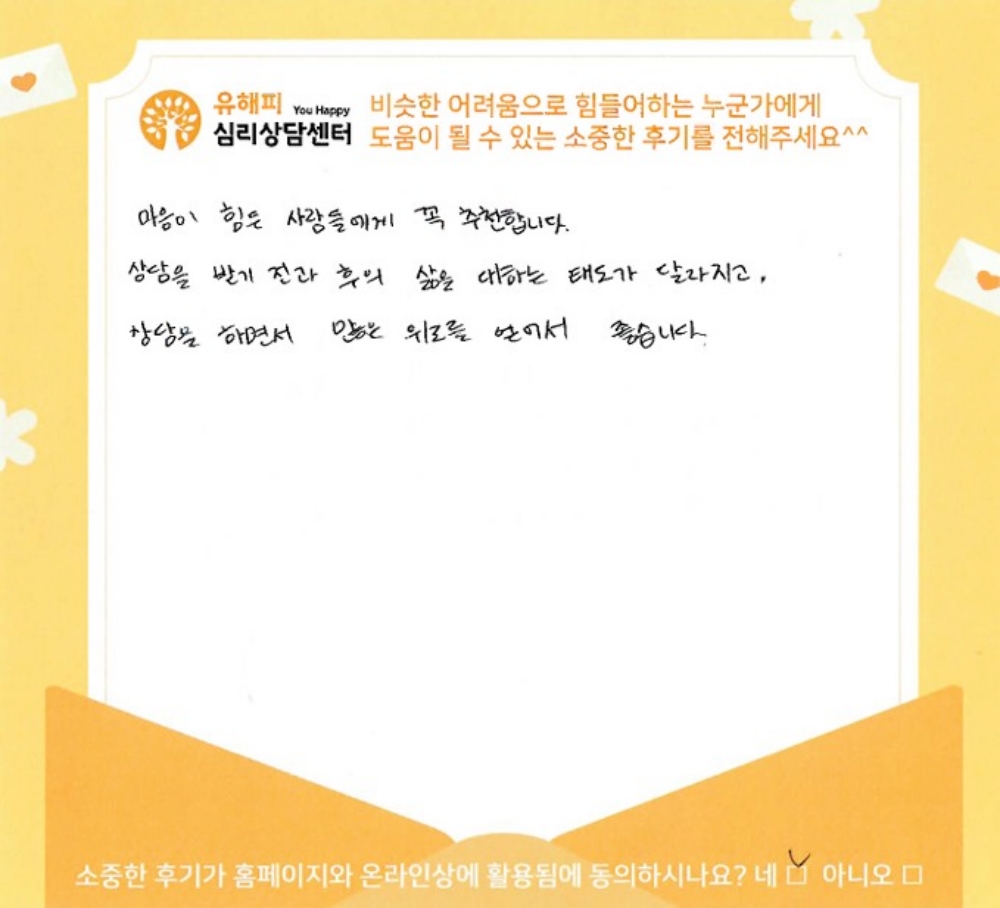 유해피 You Happy
심리상담센터
비슷한 어려움으로 힘들어하는 누군가에게
도움이 될 수 있는 소중한 후기를 전해주세요^^
마음이 힘든 사람들에게 꼭 추천합니다.
상담을 받기 전과 후의 삶을 대하는 태도가 달라지고,
상담을 하면서 많은 위로를 얻어서 좋습니다.
소중한 후기가 홈페이지와 온라인상에 활용됨에 동의하시나요? 네 ☑ 아니오 □